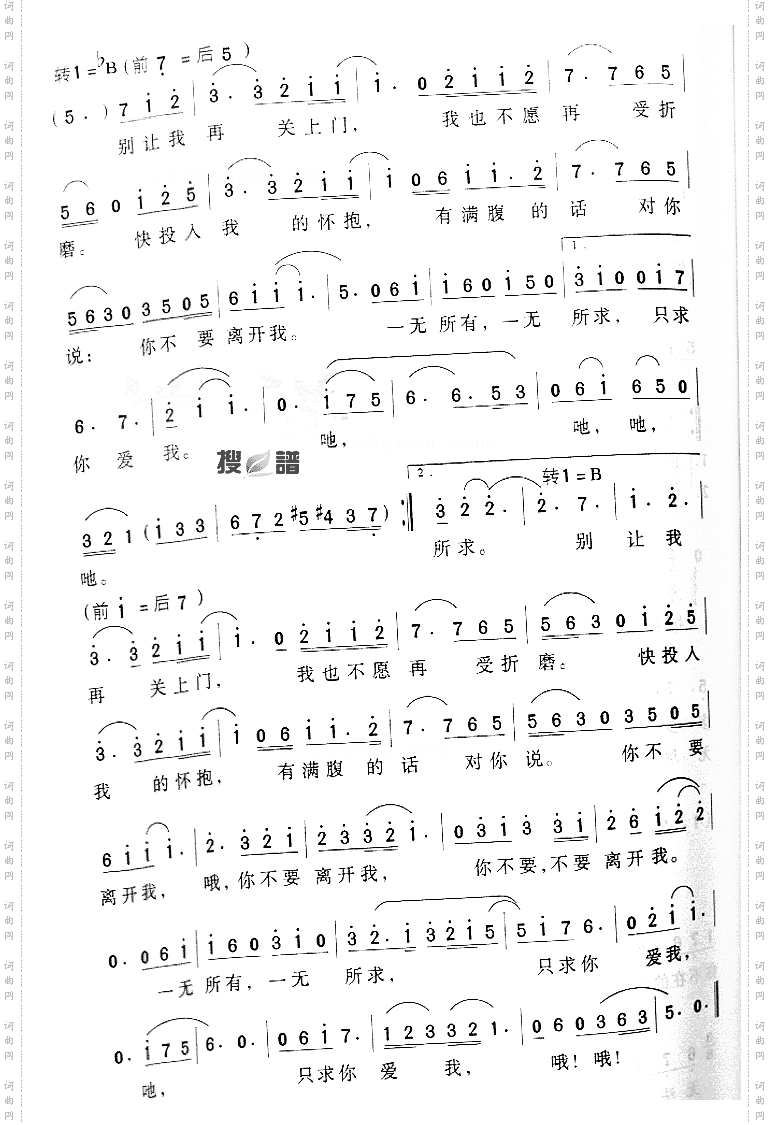 转1=♭B(前7=后5)
(5·) 7 1 2 | 3· 3 2 1 1 | 1· 0 2 1 1 2 | 7· 7 6 5
别让我 再 关上门, 我也不愿 再 受折
5 6 0 1 2 5 | 3· 3 2 1 1 | 1 0 6 1 1· 2 | 7· 7 6 5
磨。 快投入 我 的怀抱, 有满腹 的 话 对你
1.
5 6 3 0 3 5 0 5 | 6 1 1 1· | 5· 0 6 1 | 1 6 0 1 5 0 | 3 1 0 0 1 7
说: 你不 要 离开我。 一无 所有, 一无 所求, 只求
6· 7· | 2 1 1· | 0· 1 7 5 | 6· 6· 5 3 | 0 6 1 6 5 0
你 爱 我。 吔, 吔, 吔,
搜 譜
2. 转1=B
3 2 1 (1 3 3 | 6 7 2 #5 #4 3 7) :‖ 3 2 2· | 2· 7· | 1· 2·
吔。 所求。 别 让 我
(前1=后7)
3· 3 2 1 1 | 1· 0 2 1 1 2 | 7· 7 6 5 | 5 6 3 0 1 2 5
再 关上门, 我也不愿 再 受折 磨。 快投入
3· 3 2 1 1 | 1 0 6 1 1· 2 | 7· 7 6 5 | 5 6 3 0 3 5 0 5
我 的怀抱, 有满腹 的 话 对你 说。 你不 要
6 1 1 1· | 2· 3 2 1 | 2 3 3 2 1· | 0 3 1 3 3 1 | 2· 6 1 2 2
离开我, 哦,你不要 离开我, 你不要,不要 离开我。
0· 0 6 1 | 1 6 0 3 1 0 | 3 2· 1 3 2 1 5 | 5 1 7 6· | 0 2 1 1·
一无 所有, 一无 所求, 只求你 爱我,
0· 1 7 5 | 6· 0· | 0 6 1 7· | 1 2 3 3 2 1· | 0 6 0 3 6 3 | 5· 0·
吔, 只求你 爱 我, 哦! 哦!